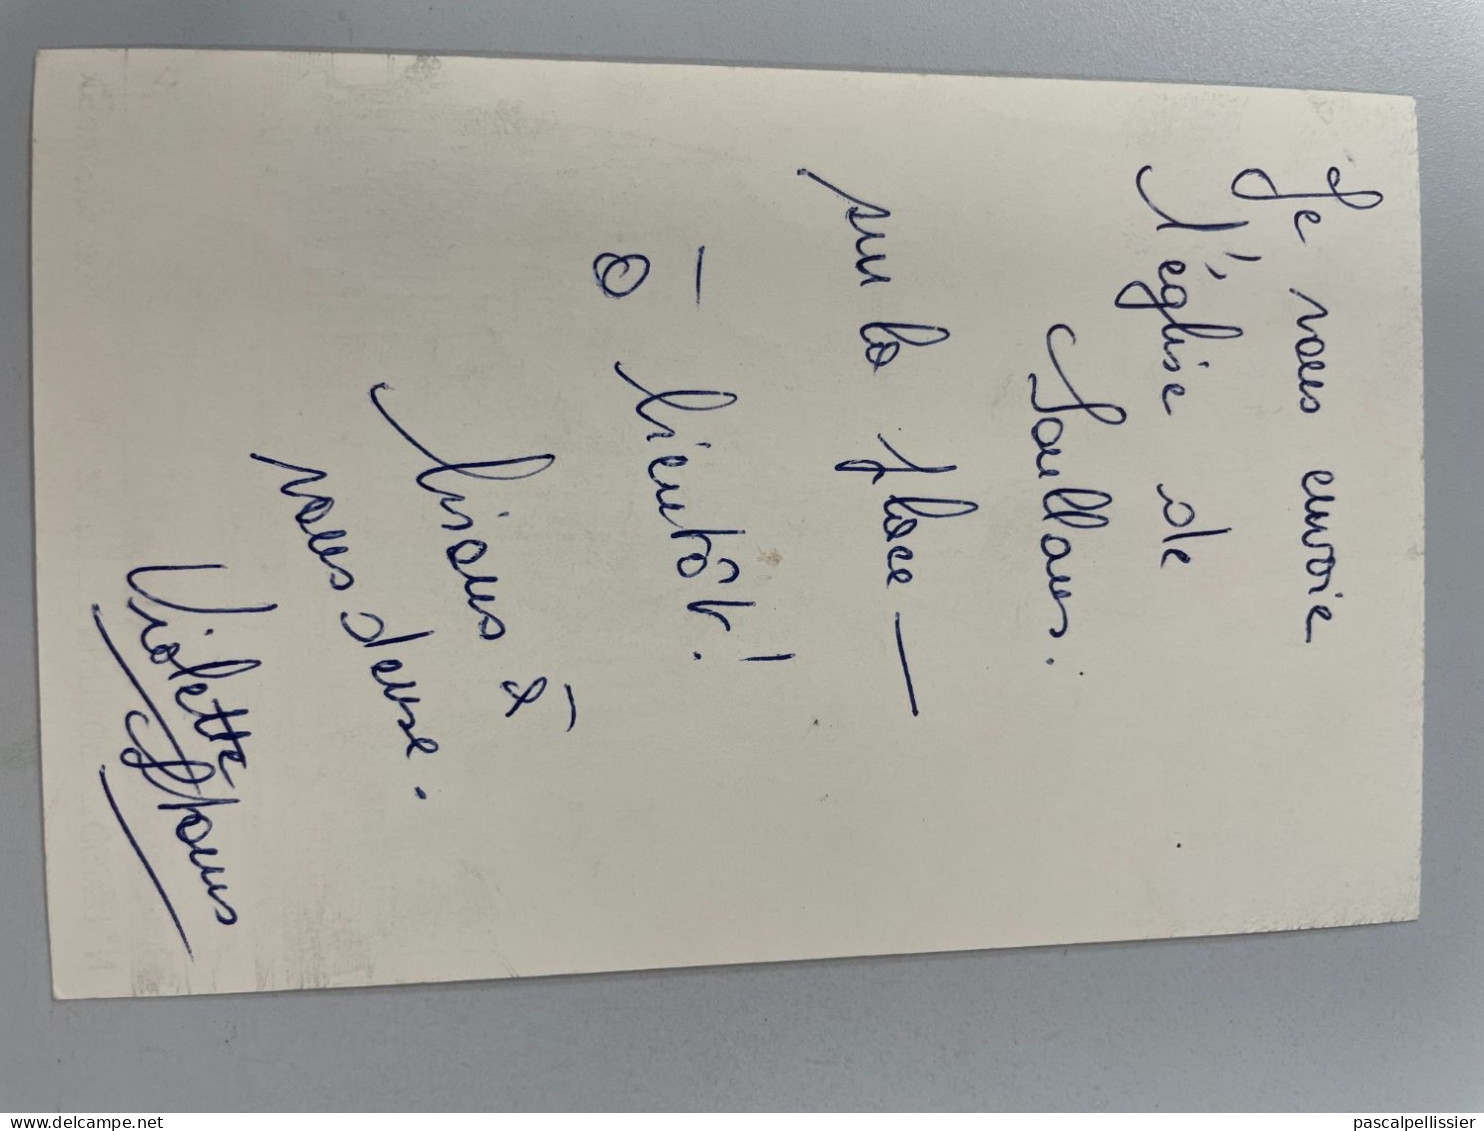 Je vous envoie
l'église de
Soullans.
sur la place —
à bientôt !
bisous à
vous deux.
Violette
delcampe.net
pascalpellissier